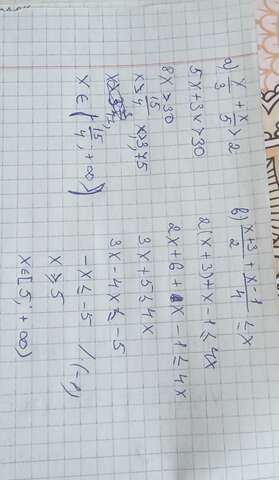 a) x/3 + x/5 > 2
5x+3x>30
8x>30
x> 15/4
x ∈ ( 15/4 ; +∞)
б) x+3/2 + x-1/4 ≤ x
2(x+3)+x-1 ≤ 4x
2x+6+x-1 ≤ 4x
3x+5 ≤ 4x
3x-4x ≤ -5
-x ≤ -5 /·(-1)
x ≥ 5
x∈[5; +∞)